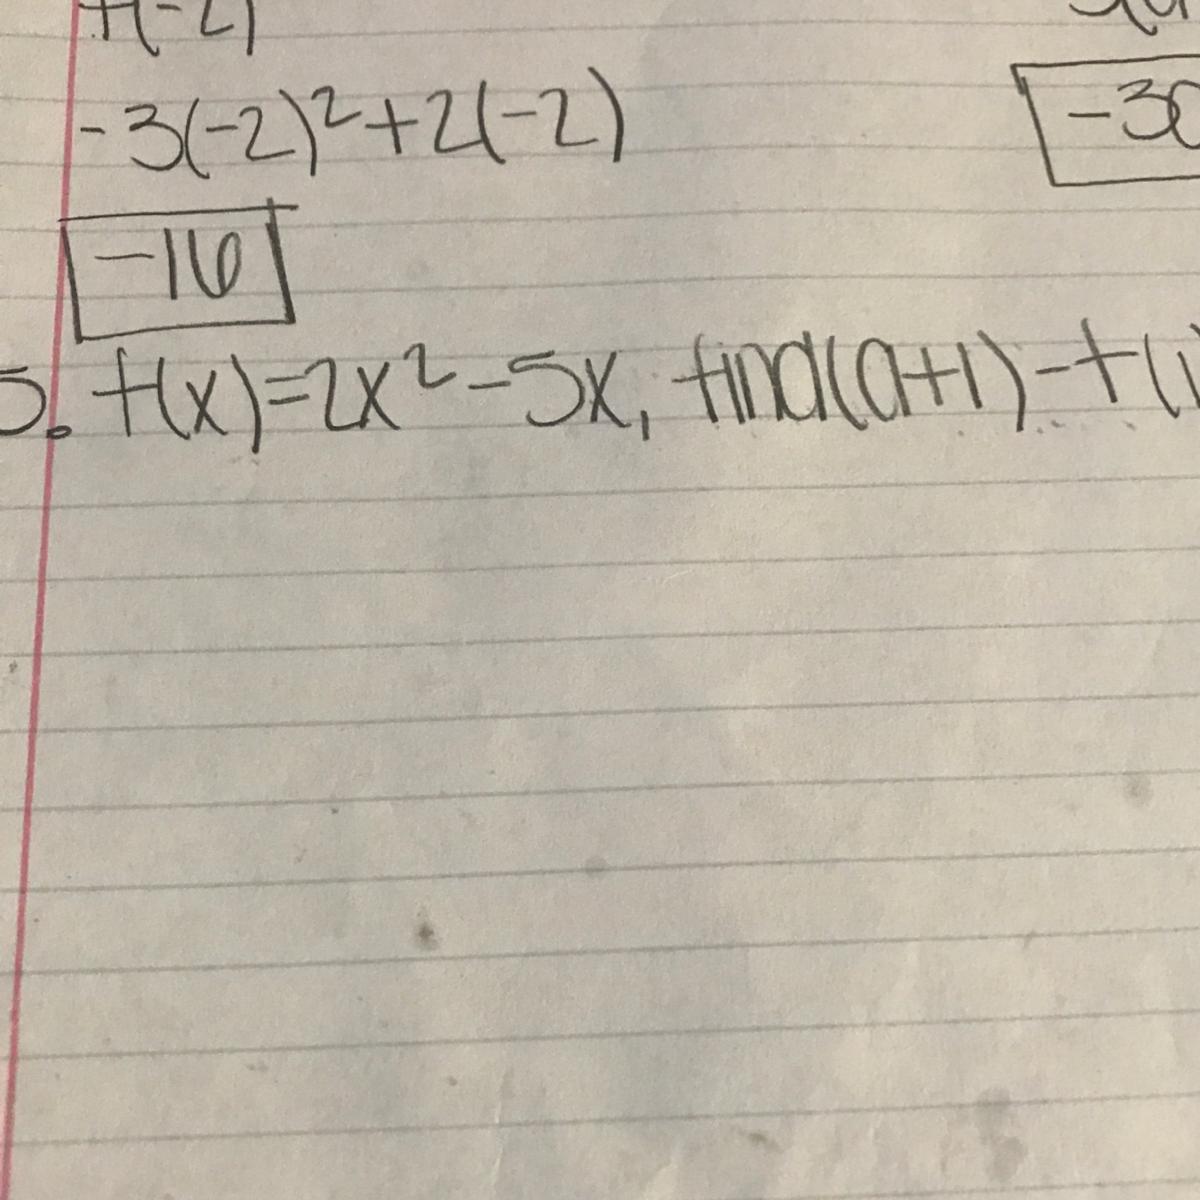 f(-2)
-3(-2)²+2(-2)
-30
-16
5. f(x)=2x²-5x, find(a+1)-f(1)